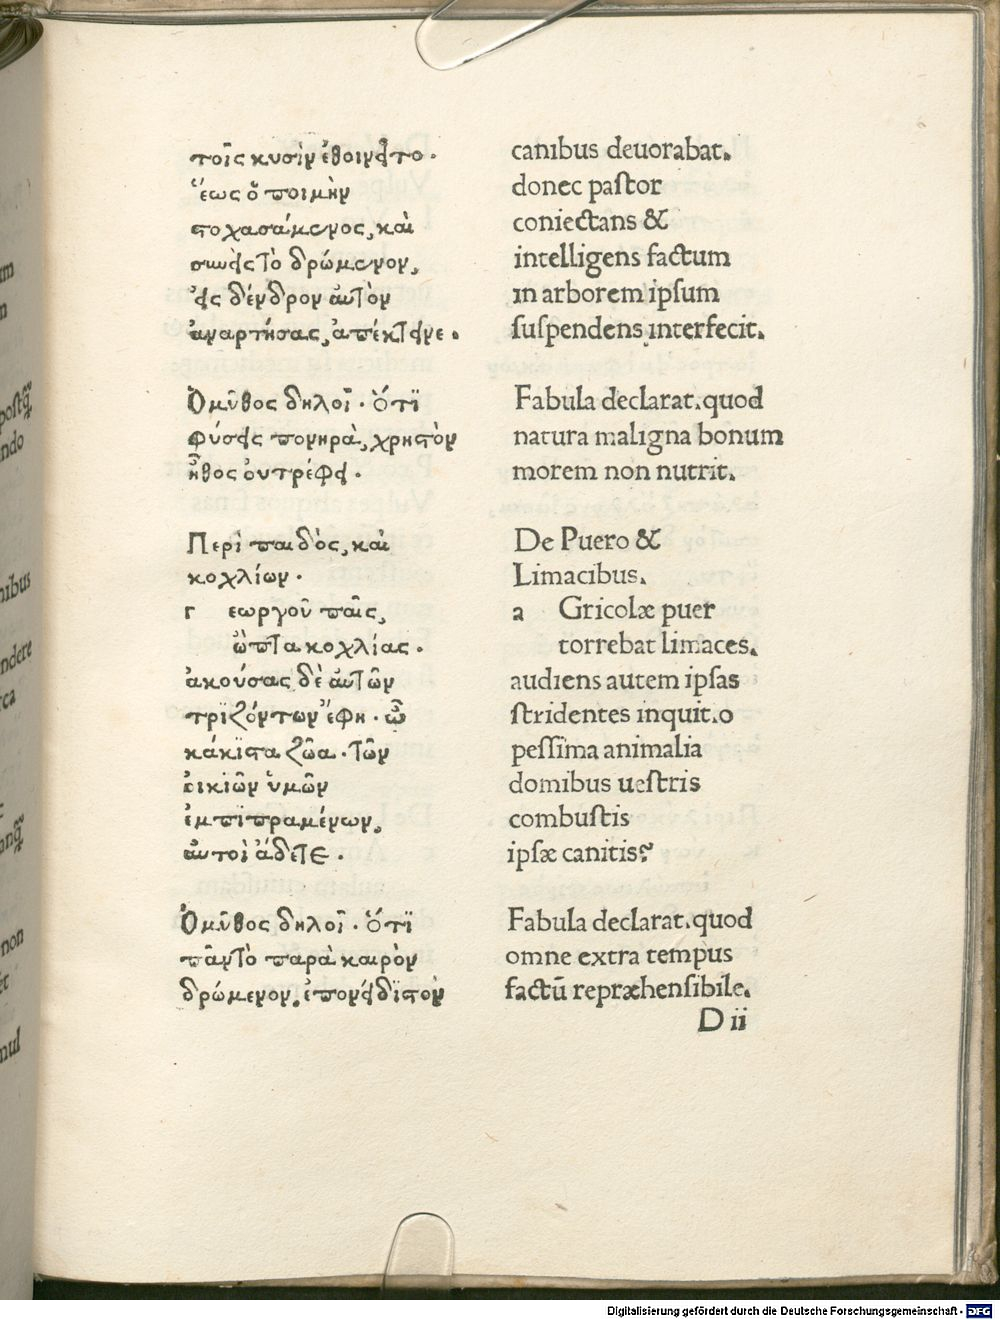 τοῖς κυσὶν ἐθοινεῖτο.
ἕως ὁ ποιμὴν
στοχασάμενος, καὶ
συνεὶς τὸ δρώμενον,
εἰς δένδρον αὐτὸν
ἀναρτήσας, ἀπέκτεινε.
Ὁ μῦθος δηλοῖ. ὅτι
φύσεις πονηρὰ, χρηστὸν
ἦθος οὐ τρέφει.
Περὶ παιδὸς, καὶ
κοχλίων.
Γ εωργοῦ παῖς,
ὤπτα κοχλίας.
ἀκούσας δὲ αὐτῶν
τριζόντων ἔφη. ὦ
κάκιστα ζῶα. τῶν
οἰκιῶν ὑμῶν
ἐμπιπραμένων,
αὐτοὶ ἄδετε.
Ὁ μῦθος δηλοῖ. ὅτι
πᾶν τὸ παρὰ καιρὸν
δρώμενον, ἐπονείδιστον
canibus deuorabat.
donec pastor
coniectans &
intelligens factum
in arborem ipsum
suspendens interfecit.
Fabula declarat. quod
natura maligna bonum
morem non nutrit.
De Puero &
Limacibus.
a Gricolæ puer
torrebat limaces.
audiens autem ipsas
stridentes inquit. o
pessima animalia
domibus uestris
combustis
ipsæ canitis?
Fabula declarat. quod
omne extra tempus
factū repræhensibile.
D ii
Digitalisierung gefördert durch die Deutsche Forschungsgemeinschaft - DFG